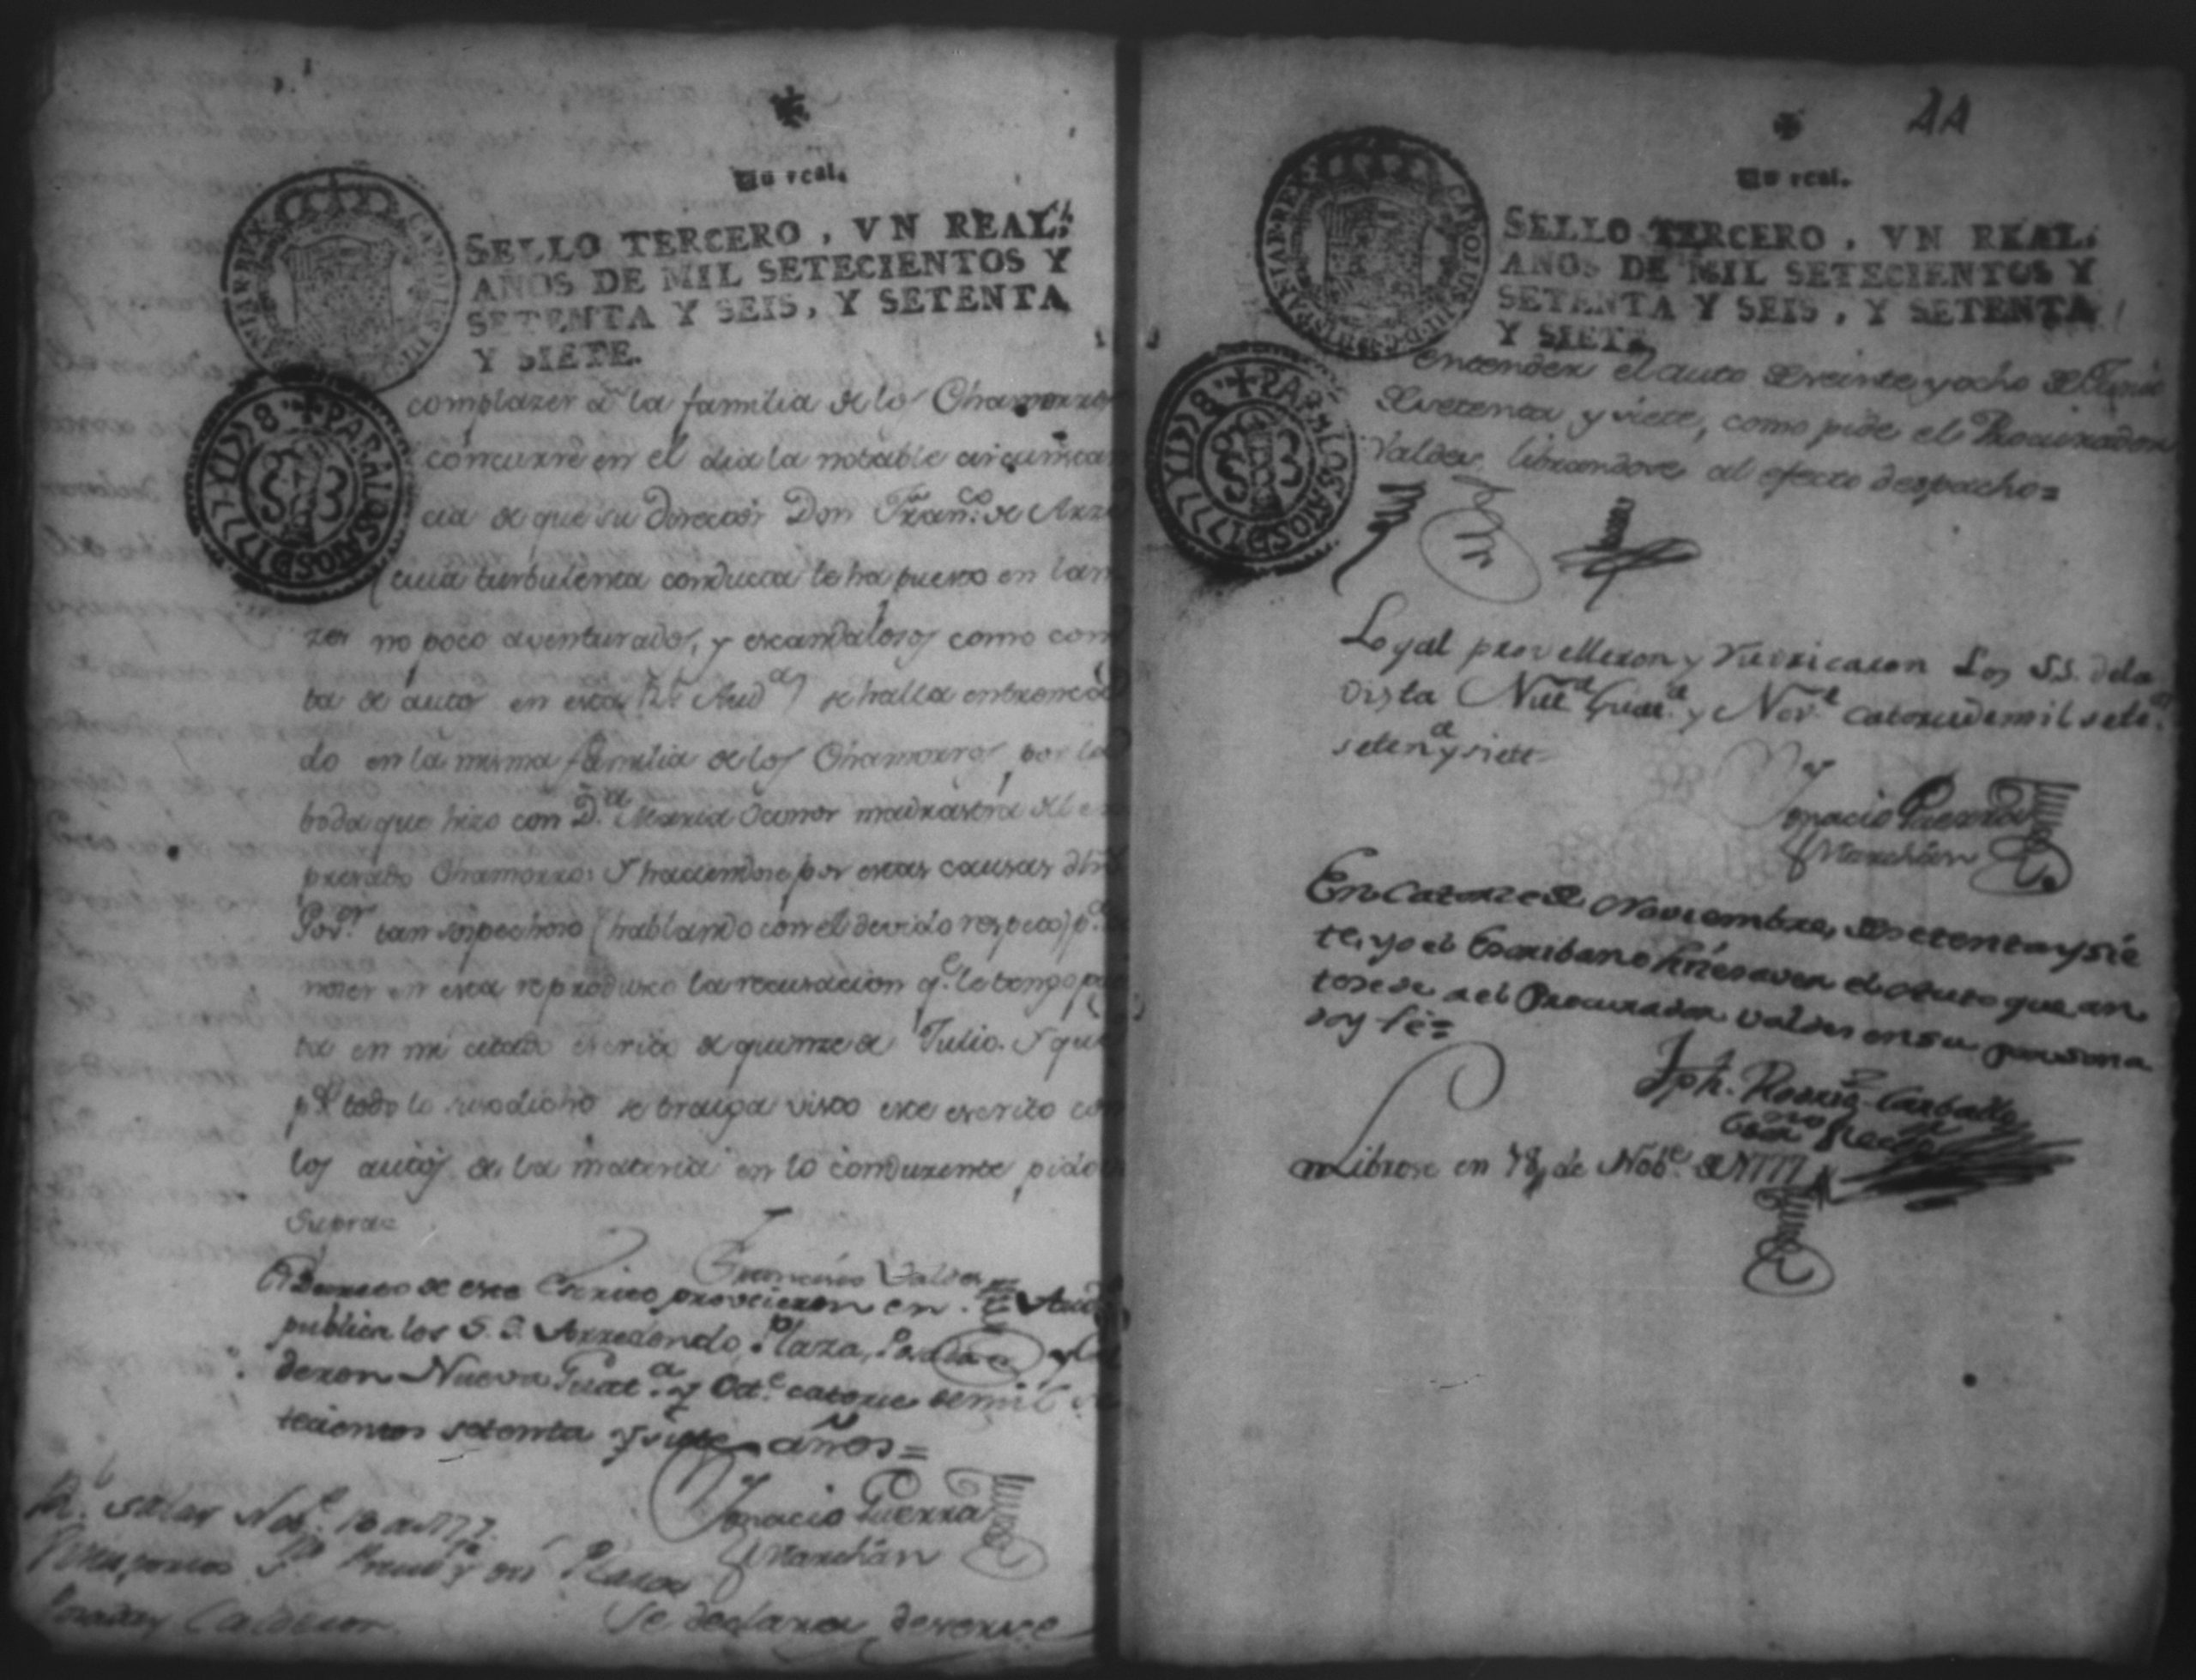 Un real.
SELLO TERCERO, VN REAL,
AÑOS DE MIL SETECIENTOS Y
SETENTA Y SEIS, Y SETENTA
Y SIETE.
CAROLUS III D G HISPANIAR REX
PARA LOS AÑOS D 1777 Y 1778
complazer â la familia de los Chamorros
concurre en el dia la notable circunstan
cia de que su Director Don Fran.co de
cuia turbulenta conducta le ha puesto en lan
zes no poco aventurados, y escandalosos como cons
ta de autos en esta Rl Aud.a se halla entronca
do en la misma familia de los Chamorros, por la
boda que hizo con D.a Maria madrastra del
presado Chamorro: Y haciendose por estas causas dho
Gov.or tan sospechoso (hablando con el devido respeto) p.a
nozer en esta reprodusco la recusacion q.e le tengo
ta en mi citado escrito de quinze de Julio. Y que
p.r todo lo susodicho se traiga visto este escrito con
los autos de la materia en lo conducente pido
Supra=
Francisco Valdes
El Decreto de este Escrito proveieron en Aud.a
publica los S.S. Arredondo, Plaza, Posada y Cal
deron Nueva Guat.a y Oct.e catorce de mil se
tecientos setenta y siete años=
Ygnacio Guerra
y Marchán
R.l Salas Nob.e 10 de 777.
Plazas
Posadas Calderon.
Se declara deverse
Un real.
SELLO TERCERO, VN REAL,
AÑOS DE MIL SETECIENTOS Y
SETENTA Y SEIS, Y SETENTA
Y SIETE
CAROLUS III D G HISPANIAR REX
PARA LOS AÑOS D 1777 Y 1778
entender el auto de veinte y ocho de
de setenta y siete, como pide el Procurador
Valdes librandose al efecto despacho=
Lo qual proveieron y rubricaron Los SS. de la
Vista Nue.a Guat.a y Nov.e catorce de mil sete.s
seten.a y siete
Ygnacio Guerra
y Marchán
En Catorze de Noviembre, de setenta y sie
te, yo el Escribano hize saver el Auto que an
tesede al Procurador Valdes en su persona
doy fé=
Jph. Rodrig.z Carballo
Librose en 18 de Nob.e de 1777